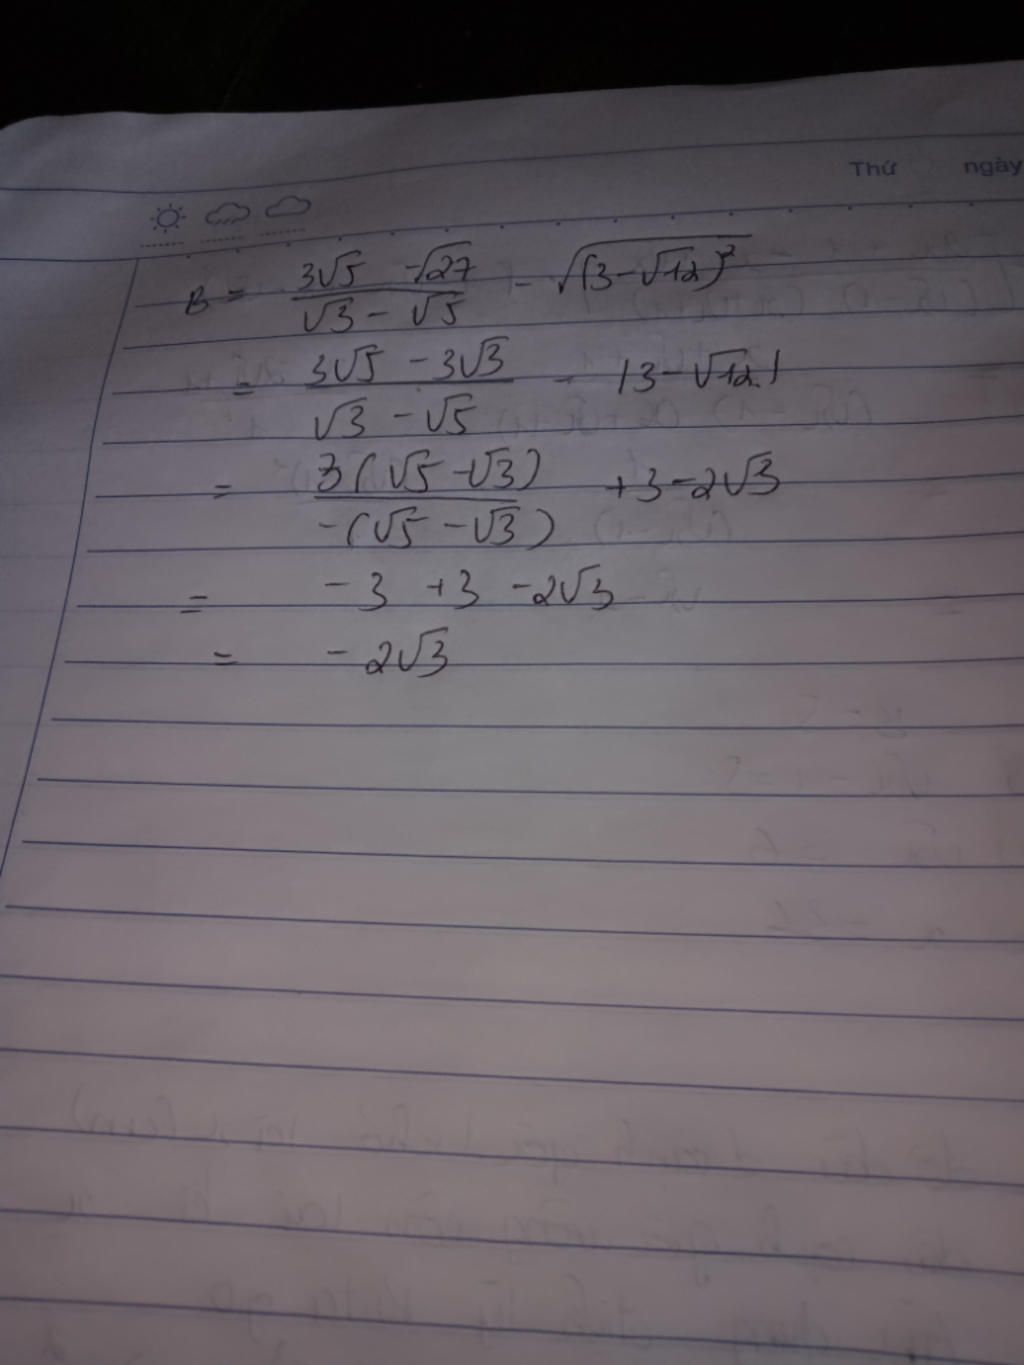 Thứ ngày
B = (3√5 - √27)/(√3 - √5) - √((3 - √12)²)
= (3√5 - 3√3)/(√3 - √5) - |3 - √12|
= 3(√5 - √3)/-(√5 - √3) + 3 - 2√3
= - 3 + 3 - 2√3
= - 2√3